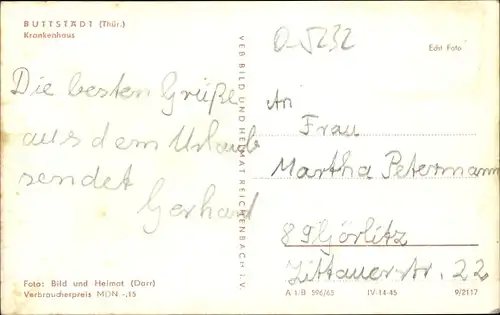 BUTTSTÄDT (Thür.)
Krankenhaus
Die besten Grüße
aus dem Urlaub
sendet
Gerhard
Foto: Bild und Heimat (Darr)
Verbraucherpreis MDN -,15
VEB BILD UND HEIMAT REICHENBACH I. V.
O-5232
Echt Foto
An
Frau
Martha Petermann
89 Görlitz
Zittauerstr. 22
A 1/B 596/65 IV-14-45 9/2117